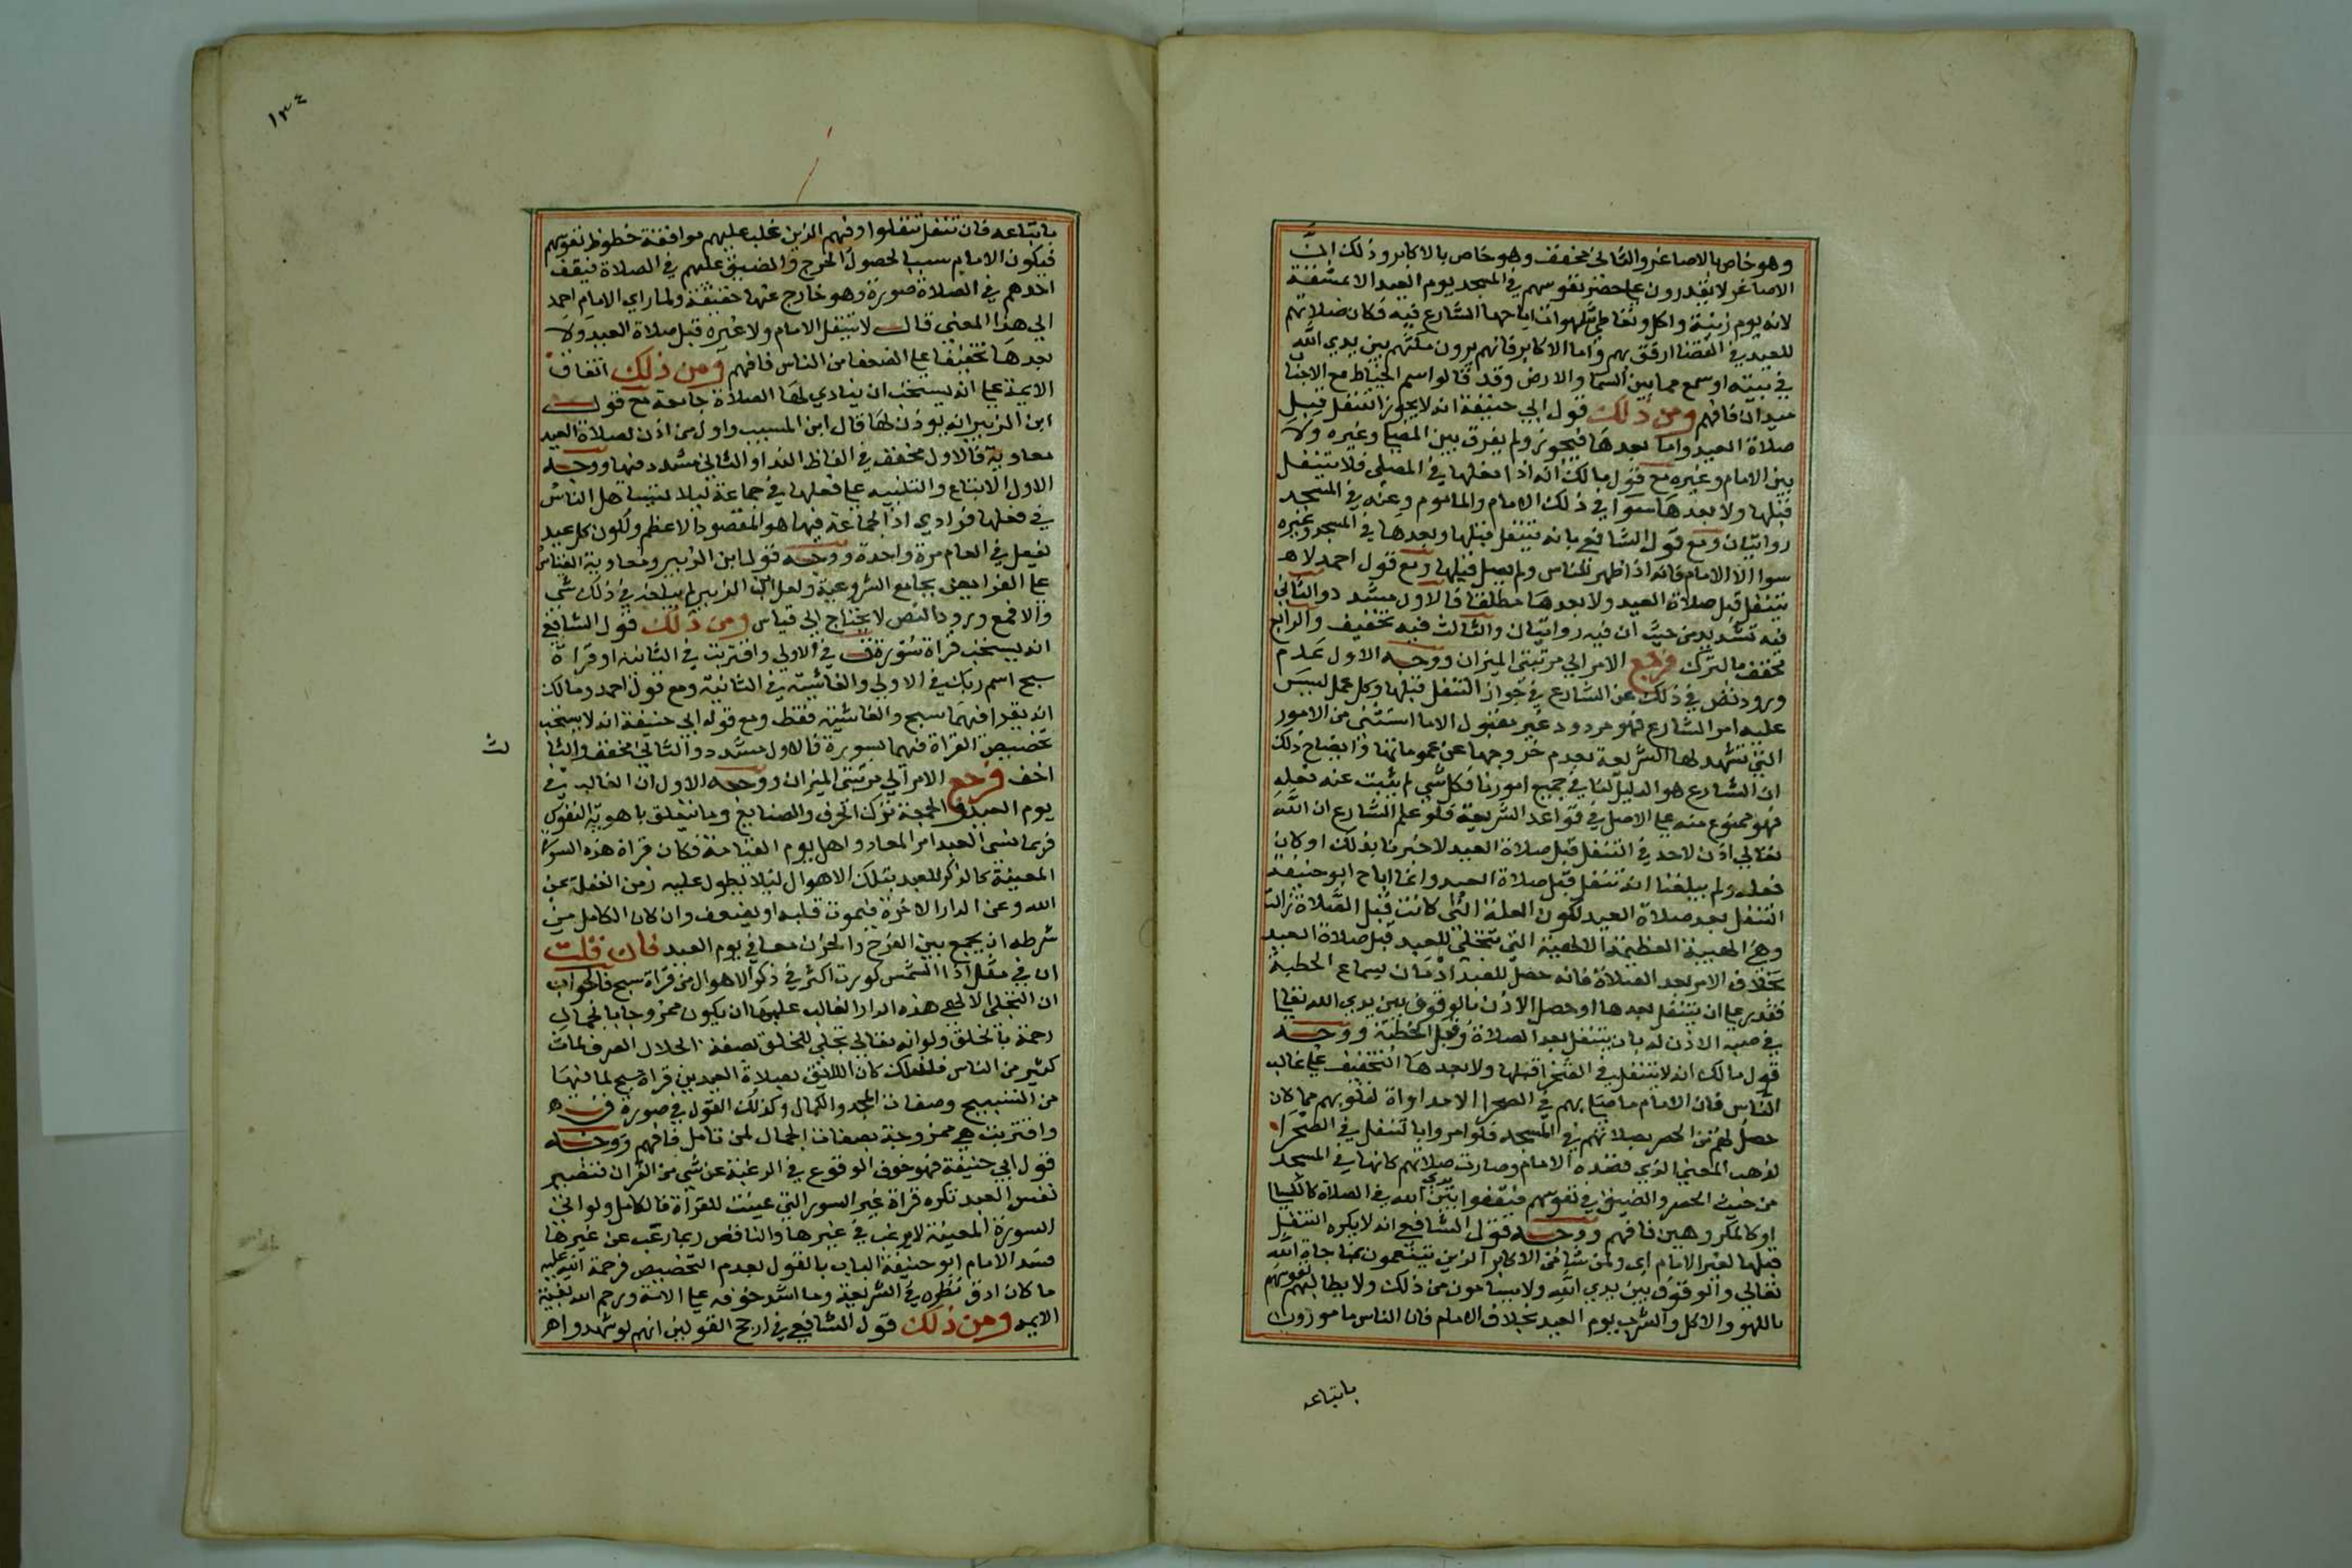 وهو خاص بالاصاغر والثاني مخفف وهو خاص بالاكابر وذلك ان
الاصاغر لا يقدرون على حضر نفوسهم في المسجد يوم العيد الا بمشقة
لانه يوم زينة واكل وتعاطي لهو اباحها الشارع فيه فكان صلاتهم
للعيد في الفضا ارفق بهم واما الاكابر فانهم يرون مكثهم بين يدي الله
في بيته اوسع مما بين السما والارض وقد قالوا سم الخياط مع الاحباب
ميدان فافهم ومن ذلك قول ابي حنيفة انه لا يجوز التنفل قبل
صلاة العيد واما بعدها فيجوز ولم يفرق بين المصلى وغيره ولا
بين الامام وغيره مع قول مالك انه اذا فعلها في المصلى فلا يتنفل
قبلها ولا بعدها سوا في ذلك الامام والماموم وعنه في المسجد
روايتان ومع قول الشافعي بانه يتنفل قبلها وبعدها في المسجد وغيره
سوا الا الامام فانه اذا ظهر للناس ولم يصل قبلها ومع قول احمد لا
يتنفل قبل صلاة العيد ولا بعدها مطلقا فالاول مشدد والثاني
فيه تشديد من حيث ان فيه روايتان والثالث فيه تخفيف والرابع
مخفف بالترك فرجع الامر الى مرتبتي الميزان ووجه الاول عدم
ورود نص في ذلك عن الشارع في جواز التنفل قبلها وكل عمل ليس
عليه امر الشارع فهو مردود غير مقبول الا ما استثنى من الامور
التي تشهد لها الشريعة بعدم خروجها عن عموماتها وايضاح ذلك
ان الشارع هو الدليل لنا في جميع امورنا فكل شي لم يثبت عنه فعله
فهو ممنوع منه على الاصل في قواعد الشريعة فلو علم الشارع ان الله
تعالى اذن لاحد في التنفل قبل صلاة العيد لاخبرنا بذلك او كان
فعله ولم يبلغنا انه تنفل قبل صلاة العيد وانما اباح ابو حنيفة
التنفل بعد صلاة العيد لكون العلة التي كانت قبل الصلاة زالت
وهي الهيبة العظيمة الالهية التي تتجلى للعبد قبل صلاة العيد
بخلاف الامر بعد الصلاة فانه حصل للعبد ادمان بسماع الخطبة
فقدر على ان يتنفل بعدها او حصل الاذن بالوقوف بين يدي الله تعالى
في ضمنه الاذن له بان يتنفل بعد الصلاة وقبل الخطبة ووجه
قول مالك انه لا يتنفل في الصحرا قبلها ولا بعدها التخفيف على غالب
الناس فان الامام ما صلى بهم في الصحرا الا مداواة لقلوبهم مما كان
حصل لهم من الحصر بصلاتهم في المسجد فلو امروا بالتنفل في الصحرا
لذهب المعنى الذي قصده الامام وصارت صلاتهم كانها في المسجد
من حيث الحصر والضيق في نفوسهم فيقفوا بين يدي الله في الصلاة كالكسالى
او كالمكروهين فافهم ووجه قول الشافعي انه لا يكره التنفل
قبلها لغير الامام اي ولمن شا من الاكابر الذين يتنعمون بمناجاة الله
تعالى والوقوف بين يدي الله ولا يسامون من ذلك ولا يطالبهم نفوسهم
باللهو والاكل والشرب يوم العيد بخلاف الامام فان الناس مامورون
باتباعه
١٣٤
باتباعه فان تنفل تنفلوا وفيهم الذين غلب عليهم موافقة حظوظ نفوسهم
فيكون الامام سببا لحصول الحرج والضيق عليهم في الصلاة فيقف
احدهم في الصلاة صورة وهو خارج عنها حقيقة ولما راى الامام احمد
الى هذا المعنى قال لا يتنفل الامام ولا غيره قبل صلاة العيد ولا
بعدها تخفيفا على الضعفا من الناس فافهم ومن ذلك اتفاق
الايمة على انه يستحب ان ينادي لها الصلاة جامعة مع قول
ابن الزبير انه يوذن لها قال ابن المسيب واول من اذن لصلاة العيد
معاوية فالاول مخفف في الفاظ الندا والثاني مشدد فيها ووجه
الاول الاتباع والتنبيه على فعلها في جماعة ليلا يتساهل الناس
في فعلها فرادي اذ الجماعة فيها هو المقصود الاعظم ولكون كل عيد
يفعل في العام مرة واحدة ووجه قول ابن الزبير ومعاوية القياس
على الفرايض بجامع الشروعية ولعل ابن الزبير لم يبلغه في ذلك شي
والا فمع ورود النص لا يحتاج الى قياس ومن ذلك قول الشافعي
انه يستحب قراة سورة ق في الاولى واقتربت في الثانية او قراة
سبح اسم ربك في الاولى والغاشية في الثانية ومع قول احمد ومالك
انه يقرا فيهما سبح والغاشية فقط ومع قول ابي حنيفة انه لا يستحب
تخصيص القراة فيهما بسورة فالاول مشدد والثاني مخفف والثا
لث
اخف فرجع الامر الى مرتبتي الميزان ووجه الاول ان الغالب في
يوم العيد والجمعة ترك الحرف والصنايع وما يتعلق باهوية النفوس
فربما نسى العبد امر المعاد واهل يوم القيامة فكان قراة هذه السورة
المعينة كالمذكر للعبد بتلك الاهوال ليلا يطول عليه زمن الغفلة عن
الله وعن الدار الاخرة فيموت قلبه او يضعف وان كان الكامل من
شرطه ان يجمع بين الفرح والحزن معا في يوم العيد فان قلت
ان في مثل اذا الشمس كورت اكثر في ذكر الاهوال من قراة سبح فالجواب
ان التجلي الالهي هذه الدار الغالب عليها ان يكون ممزوجا بالجمال
رحمة بالخلق ولو انه تعالى تجلى للخلق بصفة الجلال الصرف لمات
كثير من الناس فلذلك كان اللايق بصلاة العيدين قراة سبح لما فيها
من التسبيح وصفات المجد والكمال وكذلك القول في صورة ق
واقتربت هي ممزوجة بصفات الجمال لمن تامل فافهم ووجه
قول ابي حنيفة فهو خوف الوقوع في الرغبة عن شي من القران فتصير
نفس العبد تكره قراة غير السور التي عينت للقراة فالكامل ولو اتى
السورة المعينة لا يرغب في غيرها والناقص ربما رغب عن غيرها
فسد الامام ابو حنيفة الباب بالقول بعدم التخصيص فرحمة الله عليه
ما كان ادق نظره في الشريعة وما اشد خوفه على الامة ورحم الله بقية
الايمه ومن ذلك قول الشافعي في ارجح القولين انهم لو شهدوا